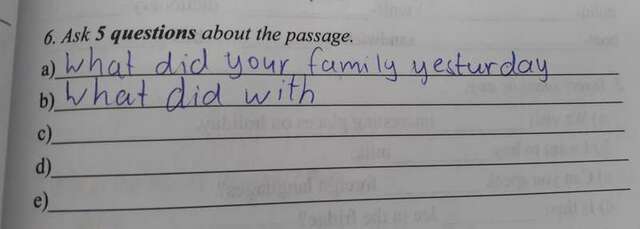 6. Ask 5 questions about the passage.
a) What did your family yesturday
b) What did with
c)
d)
e)